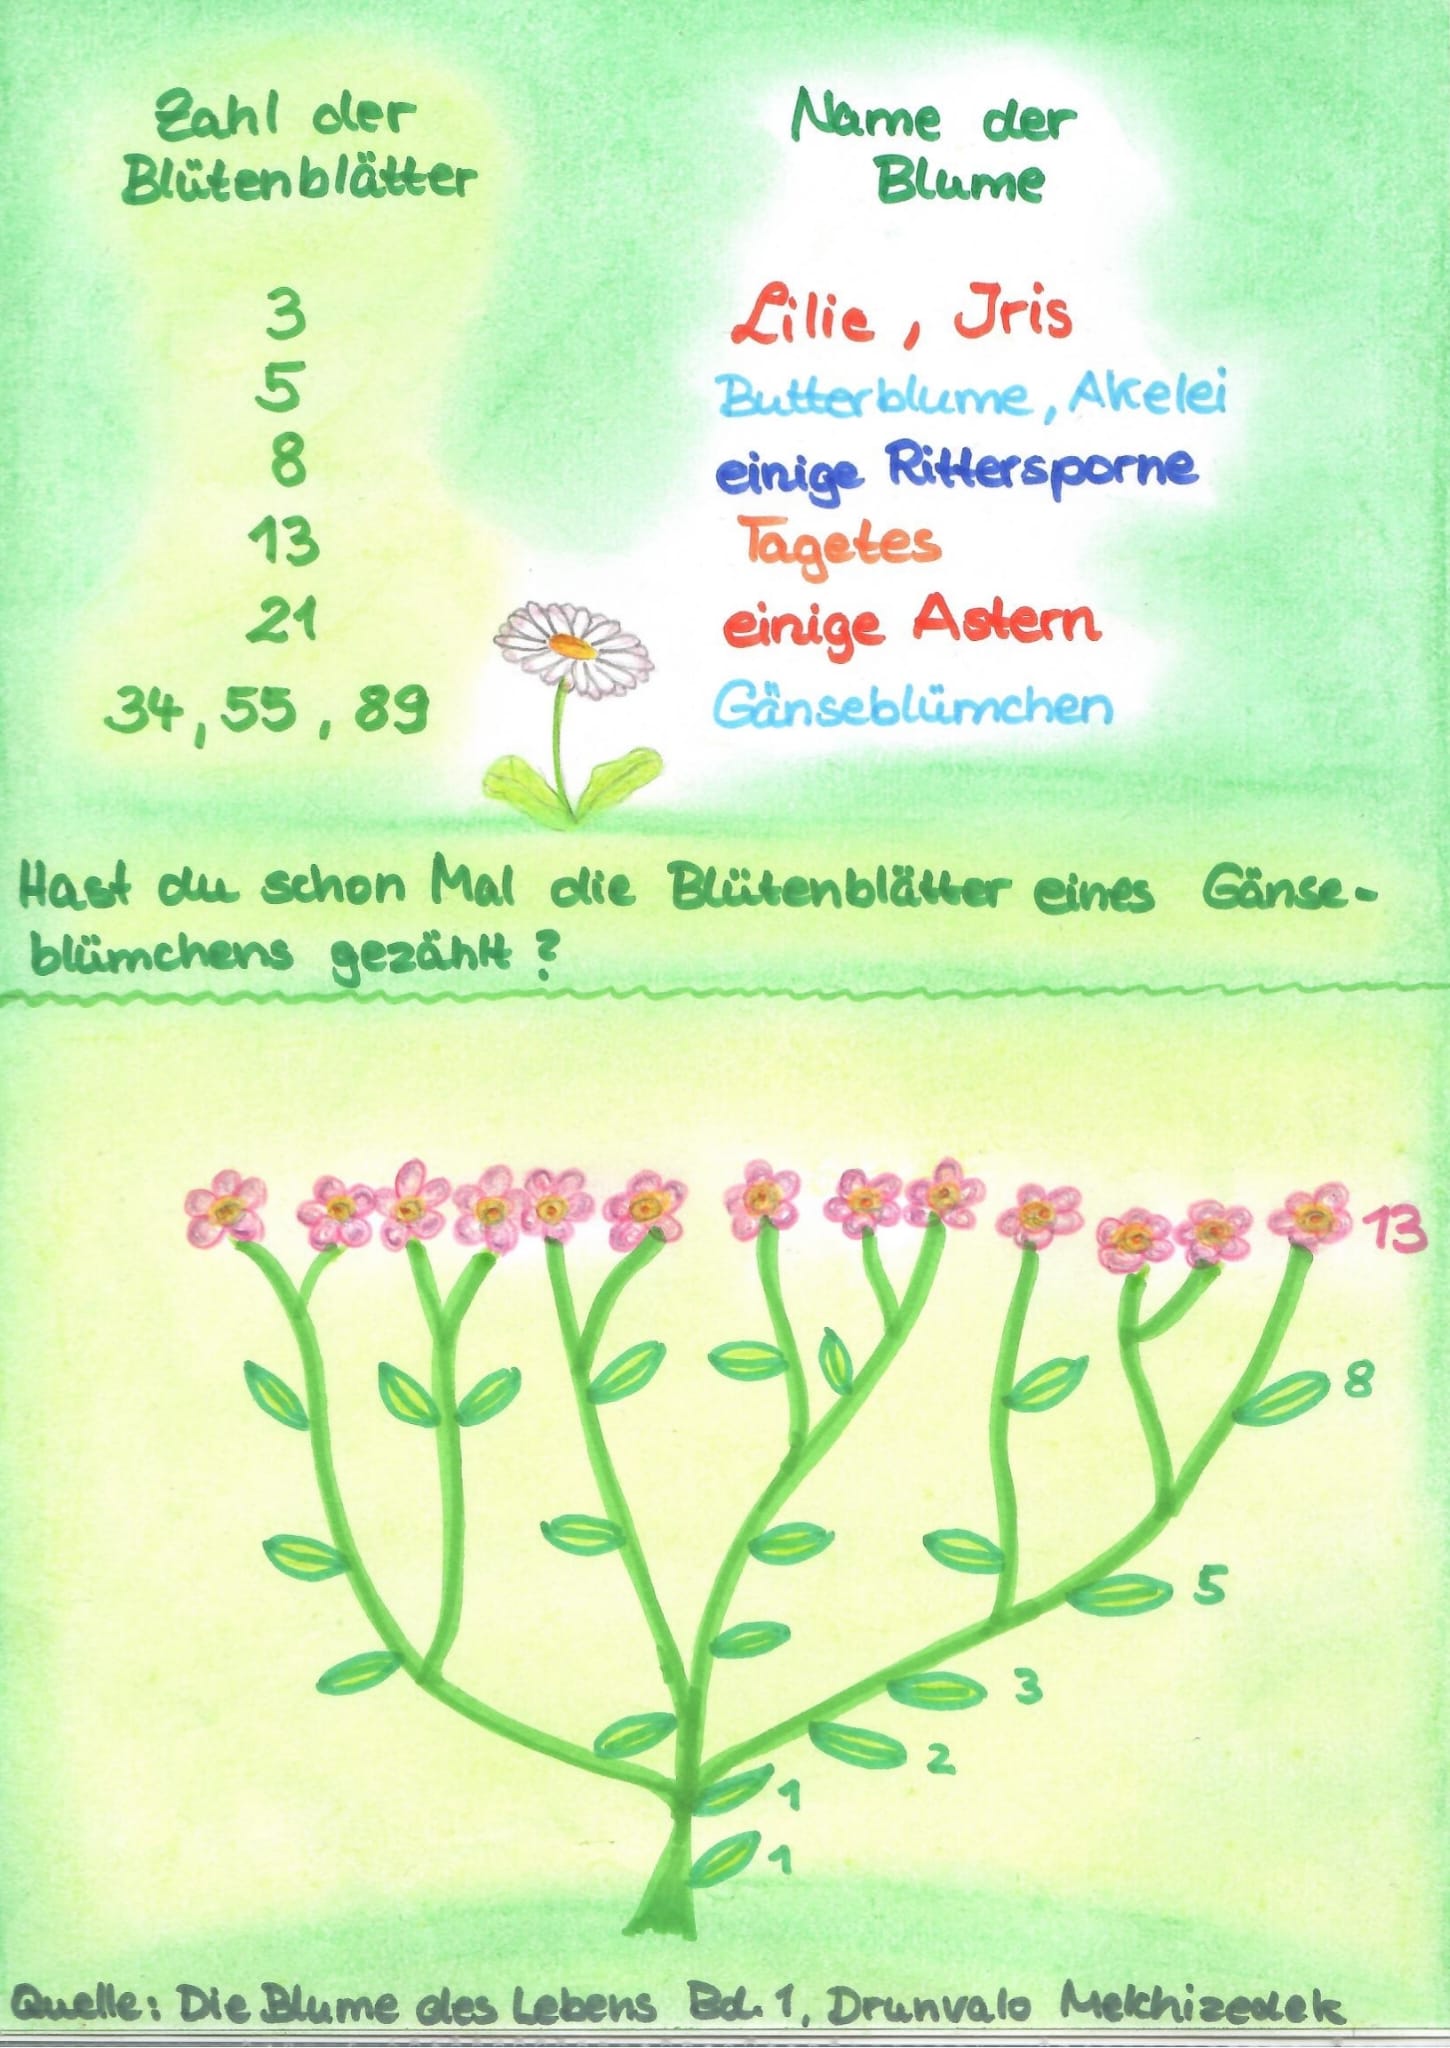 Zahl der
Blütenblätter
Name der
Blume
3 Lilie, Iris
5 Butterblume, Akelei
8 einige Rittersporne
13 Tagetes
21 einige Astern
34, 55, 89 Gänseblümchen
Hast du schon Mal die Blütenblätter eines Gänse-
blümchens gezählt?
13
8
5
3
2
1
1
Quelle: Die Blume des Lebens Bd. 1, Drunvalo Melchizedek